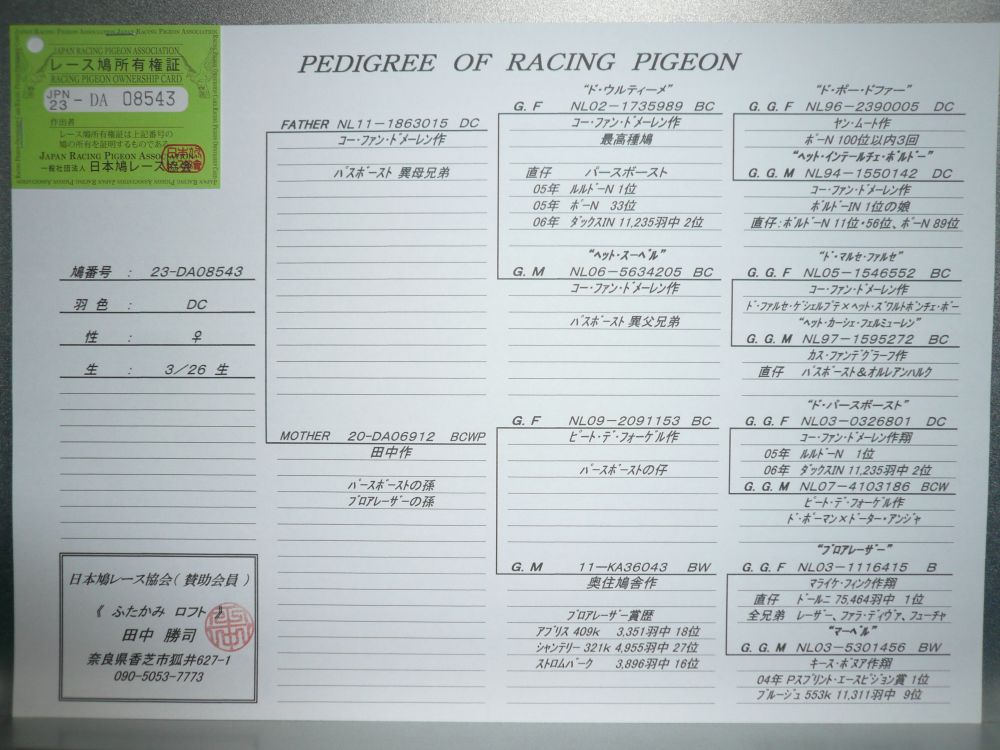 JAPAN RACING PIGEON ASSOCIATION
レース鳩所有権証
RACING PIGEON OWNERSHIP CARD
JPN
23 - DA 08543
作出者
レース鳩所有権証は上記番号の
鳩の所有を証明するものである
JAPAN RACING PIGEON ASSOCIATION
一般社団法人 日本鳩レース協会
PEDIGREE OF RACING PIGEON
鳩番号 : 23-DA08543
羽色 : DC
性 : ♀
生 : 3/26 生
日本鳩レース協会(賛助会員)
《 ふたかみ ロフト 》
田中 勝司
奈良県香芝市狐井627-1
090-5053-7773
FATHER NL11-1863015 DC
コー・ファン・ドメーレン作
バスボースト 異母兄弟
MOTHER 20-DA06912 BCWP
田中作
バースボーストの孫
ブロアレーザーの孫
"ド・ウルティーメ"
G.F NL02-1735989 BC
コー・ファン・ドメーレン作
最高種鳩
直仔 バースボースト
05年 ルルドーN 1位
05年 ポーN 33位
06年 ダックスIN 11,235羽中 2位
"ヘット・スーペル"
G.M NL06-5634205 BC
コー・ファン・ドメーレン作
バスボースト 異父兄弟
G.F NL09-2091153 BC
ピート・デ・フォーゲル作
バースボーストの仔
G.M 11-KA36043 BW
奥住鳩舎作
ブロアレーザー賞歴
アブリス 409k 3,351羽中 18位
シャンテリー 321k 4,955羽中 27位
ストロムバーク 3,896羽中 16位
"ド・ポー・ドファー"
G.G.F NL96-2390005 DC
ヤン・ムート作
ポーN 100位以内3回
"ヘット・インテールチェ・ボルドー"
G.G.M NL94-1550142 DC
コー・ファン・ドメーレン作
ボルドーIN 1位の娘
直仔:ボルドーN 11位・56位、ポーN 89位
"ド・マルセ・ファルセ"
G.G.F NL05-1546552 BC
コー・ファン・ドメーレン作
ド・ファルセ・ゲシェルプテ×ヘット・ズワルトボンチェ・ポー
"ヘット・カーシェ・フェルミューレン"
G.G.M NL97-1595272 BC
カス・ファンデグラーフ作
直仔 バスボースト&オルレアンハルク
"ド・バースボースト"
G.G.F NL03-0326801 DC
コー・ファン・ドメーレン作翔
05年 ルルドN 1位
06年 ダックスIN 11,235羽中 2位
G.G.M NL07-4103186 BCW
ピート・デ・フォーゲル作
ド・ボーマン×ドーター・アンジャ
"ブロアレーザー"
G.G.F NL03-1116415 B
マライケ・フィンク作翔
直仔 ドールニ 75,464羽中 1位
全兄弟 レーザー、ファラ・ディヴァ、フューチャ
"マーベル"
G.G.M NL03-5301456 BW
キース・ボスア作翔
04年 Pスプリント・エースピジョン賞 1位
ブルージュ 553k 11,311羽中 9位